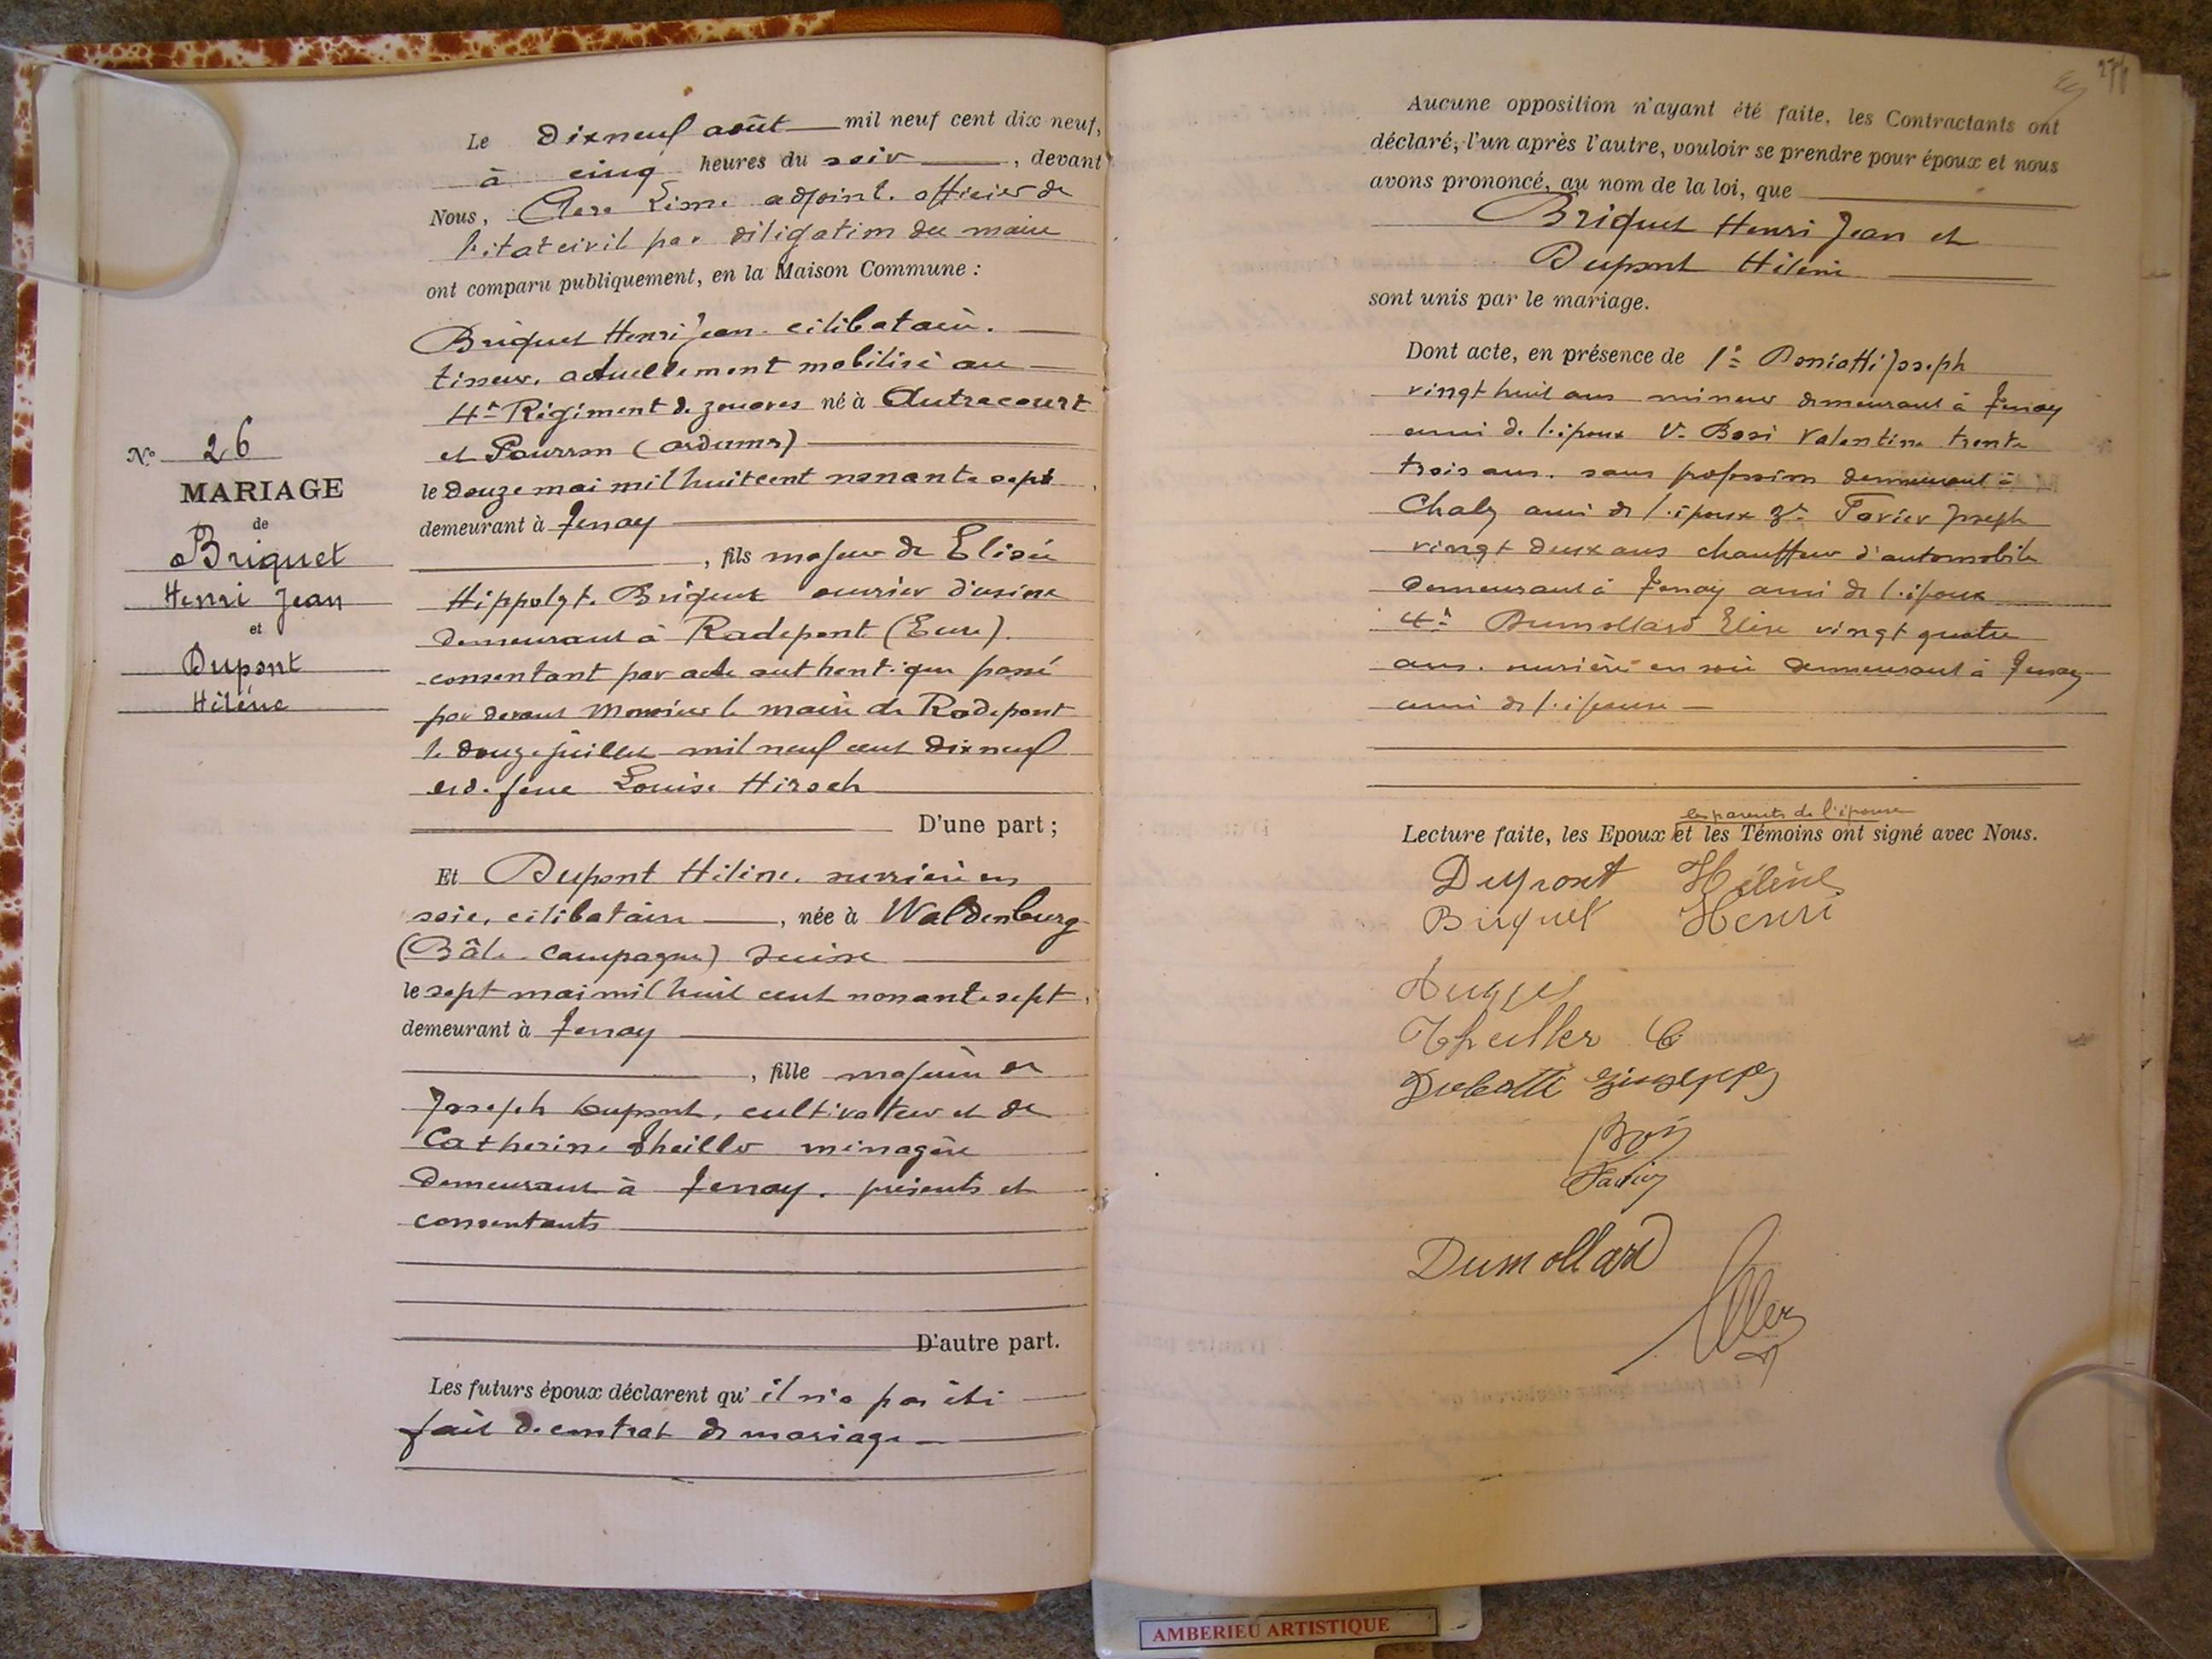 Le Dixneuf août mil neuf cent dix neuf,
à cinq heures du soir, devant
Nous, adjoint officier de
l'état civil par déligation du maire
ont comparu publiquement, en la Maison Commune :
Briquet Henri Jean célibataire.
tisseur, actuellement mobilisé au
4e Régiment de zouaves né à Autrecourt
et Pourron (Ardennes)
le douze mai mil huit cent nonante sept,
demeurant à Tenay
, fils majeur de Elisée
Hippolyte Briquet ouvrier d'usine
demeurant à Radepont (Eure).
consentant par acte authentique passé
par devant Monsieur le maire de Radepont
le douze juillet mil neuf cent dixneuf
et de feue Louise Hirsch
D'une part ;
Et Dupont Hélène, ourdière en
soie, célibataire, née à Waldenburg
(Bâle-Campagne) Suisse
le sept mai mil huit cent nonante sept,
demeurant à Tenay
, fille majeure de
Joseph Dupont, cultivateur et de
Catherine Theiller ménagère
demeurant à Tenay. présents et
consentants
D'autre part.
Les futurs époux déclarent qu' il n'a pas été
fait de contrat de mariage
No 26
MARIAGE
de
Briquet
Henri Jean
et
Dupont
Hélène
Aucune opposition n'ayant été faite, les Contractants ont
déclaré, l'un après l'autre, vouloir se prendre pour époux et nous
avons prononcé, au nom de la loi, que
Briquet Henri Jean et
Dupont Hélène
sont unis par le mariage.
Dont acte, en présence de 1° Joseph
vingt huit ans mineur demeurant à Tenay
ami de l'époux 2° Bosi Valentin trente
trois ans. sans profession demeurant à
Chaley ami de l'époux 3° Favier Joseph
vingt deux ans chauffeur d'automobile
demeurant à Tenay ami de l'époux
4° Dumollard Elise vingt quatre
ans. ourdière en soie demeurant à Tenay
amie de l'épouse
les parents de l'épouse
Lecture faite, les Epoux et les Témoins ont signé avec Nous.
Dupont Hélène
Briquet Henri
Theiller C
Giuseppe
Bosi
Favier
Dumollard
AMBERIEU ARTISTIQUE